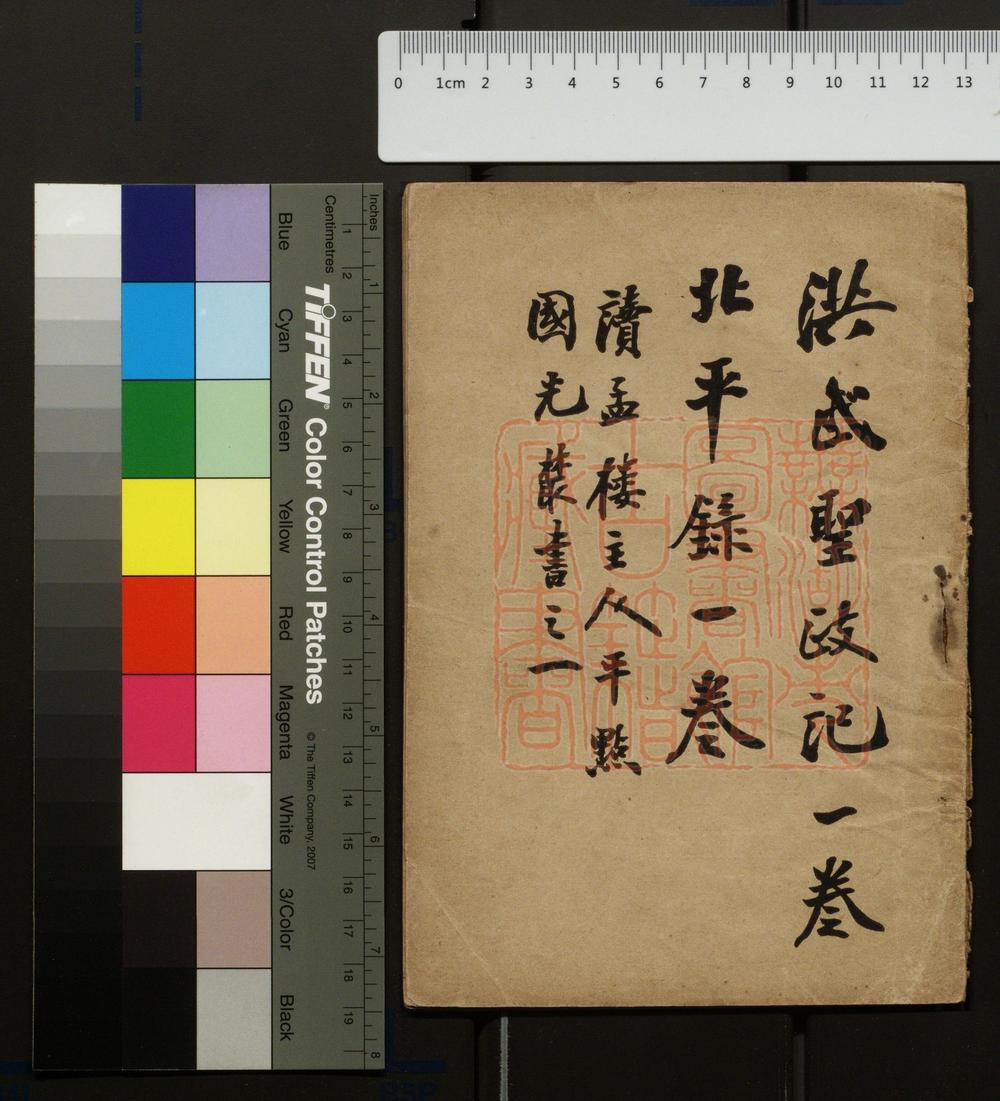 洪武聖政記一卷
北平錄一卷
讀孟樓主人平點
國光叢書之一
0 1cm 2 3 4 5 6 7 8 9 10 11 12 13
Inches 1 2 3 4 5 6 7 8
Centimetres 1 2 3 4 5 6 7 8 9 10 11 12 13 14 15 16 17 18 19
TIFFEN® Color Control Patches © The Tiffen Company, 2007
Blue Cyan Green Yellow Red Magenta White 3/Color Black